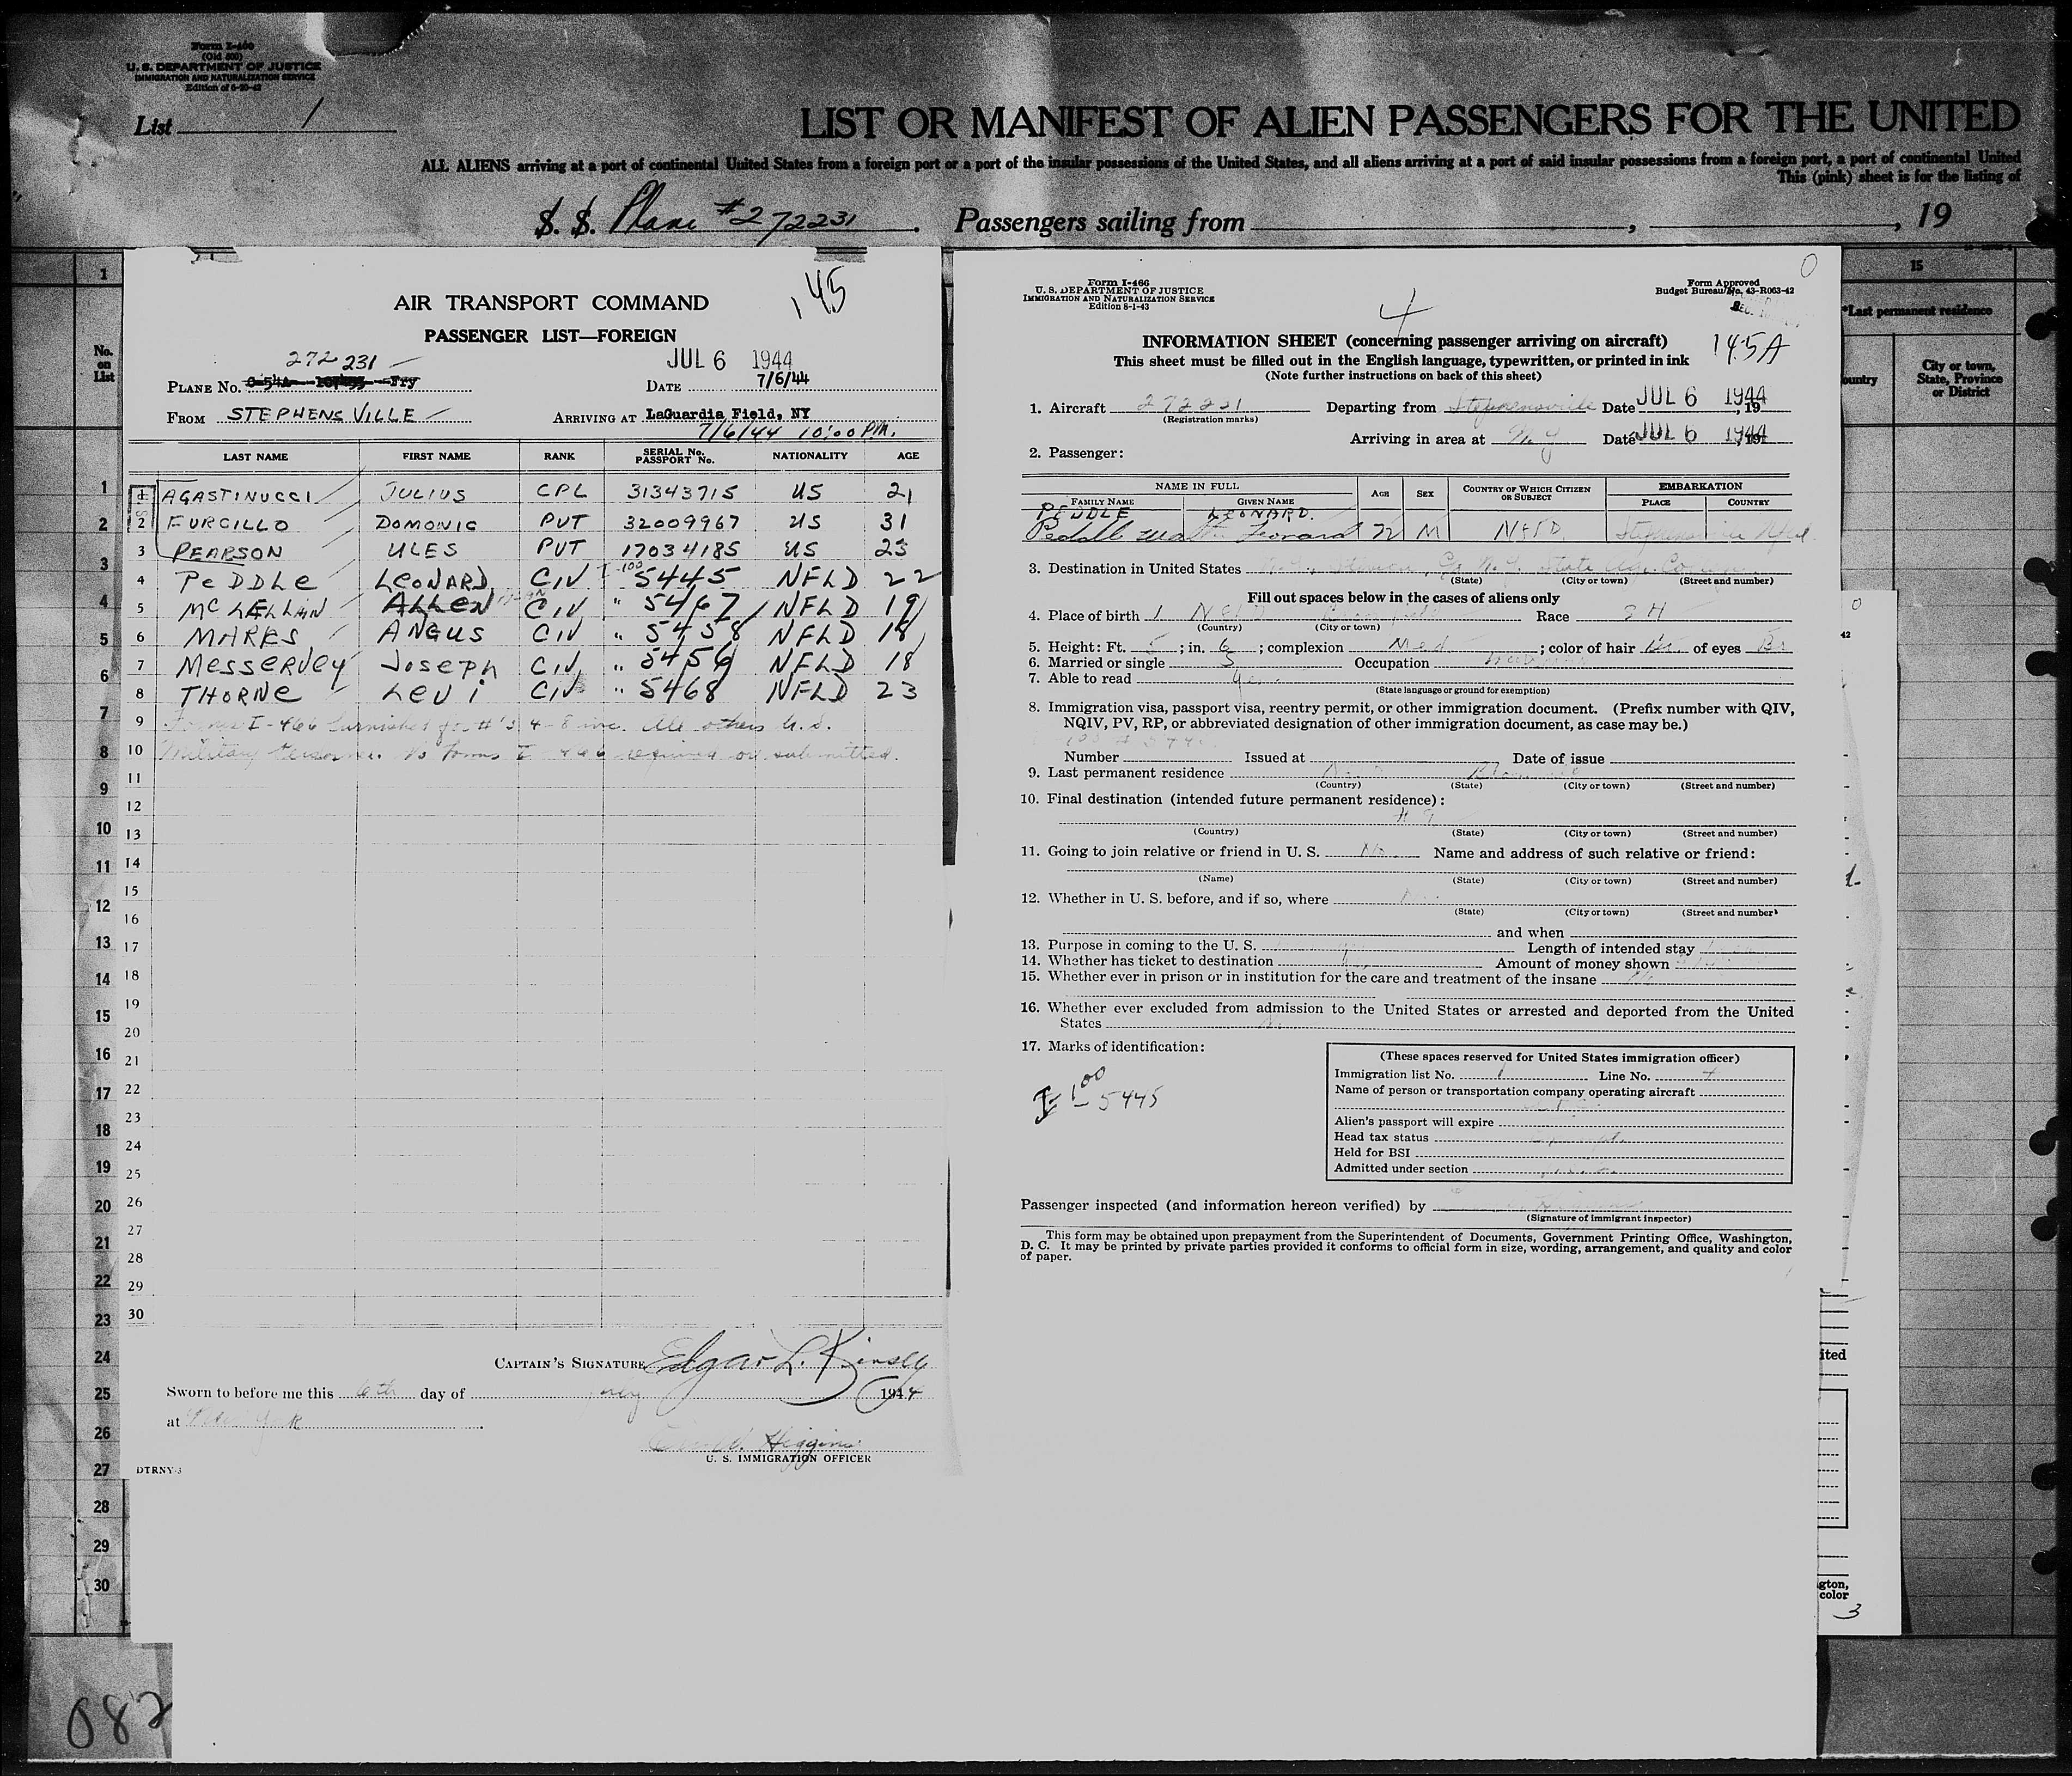 Form I-460
(Old 500)
U. S. DEPARTMENT OF JUSTICE
IMMIGRATION AND NATURALIZATION SERVICE
Edition of 6-20-42
List 1
LIST OR MANIFEST OF ALIEN PASSENGERS FOR THE UNITED
ALL ALIENS arriving at a port of continental United States from a foreign port or a port of the insular possessions of the United States, and all aliens arriving at a port of said insular possessions from a foreign port, a port of continental United
This (pink) sheet is for the listing of
S. S. Plane #272231 . Passengers sailing from , , 19
No. on List
1
2
3
4
5
6
7
8
9
10
11
12
13
14
15
16
17
18
19
20
21
22
23
24
25
26
27
28
29
30
145
AIR TRANSPORT COMMAND
PASSENGER LIST—FOREIGN
272 231
JUL 6 1944
PLANE NO. C-54A Fry DATE 7/6/44
FROM STEPHENSVILLE ARRIVING AT LaGuardia Field, NY
7/6/44 10:00 PM.
LAST NAME FIRST NAME RANK SERIAL No. PASSPORT No. NATIONALITY AGE
1 AGASTINUCCI JULIUS CPL 31343715 US 21
2 FURCILLO DOMONIC PVT 32009967 US 31
3 PEARSON ULES PVT 17034185 US 23
4 PEDDLE LEONARD CIV I-100 5445 NFLD 22
5 McLELLAN ALLEN CIV " 5467 NFLD 19
6 MARKS ANGUS CIV " 5458 NFLD 18
7 MESSERVEY JOSEPH CIV " 5456 NFLD 18
8 THORNE LEVI CIV " 5468 NFLD 23
9 Forms I-466 furnished for #'s 4-8 inc. All others U.S.
10 Military Personnel. No forms I-466 required or submitted.
11
12
13
14
15
16
17
18
19
20
21
22
23
24
25
26
27
28
29
30
CAPTAIN'S SIGNATURE Edgar L. Kinsey
Sworn to before me this 6th day of July 1944
at New York
Higgins
U. S. IMMIGRATION OFFICER
DTRNY-3
082
Form I-466
U. S. DEPARTMENT OF JUSTICE
IMMIGRATION AND NATURALIZATION SERVICE
Edition 8-1-43
Form Approved
Budget Bureau No. 43-R063-42
4
145A
INFORMATION SHEET (concerning passenger arriving on aircraft)
This sheet must be filled out in the English language, typewritten, or printed in ink
(Note further instructions on back of this sheet)
1. Aircraft 272231 Departing from Stephensville Date JUL 6 1944, 19
(Registration marks)
Arriving in area at N.Y. Date JUL 6 1944, 19
2. Passenger:
NAME IN FULL AGE SEX COUNTRY OF WHICH CITIZEN OR SUBJECT EMBARKATION
FAMILY NAME GIVEN NAME PLACE COUNTRY
PEDDLE LEONARD.
Peddle Leonard 22 M NFLD
3. Destination in United States
(State) (City or town) (Street and number)
Fill out spaces below in the cases of aliens only
4. Place of birth Race
(Country) (City or town)
5. Height: Ft. 5 ; in. 6 ; complexion Med ; color of hair Br. of eyes Br
6. Married or single S Occupation
7. Able to read yes
(State language or ground for exemption)
8. Immigration visa, passport visa, reentry permit, or other immigration document. (Prefix number with QIV,
NQIV, PV, RP, or abbreviated designation of other immigration document, as case may be.)
Number Issued at Date of issue
9. Last permanent residence
(Country) (State) (City or town) (Street and number)
10. Final destination (intended future permanent residence):
# 9
(Country) (State) (City or town) (Street and number)
11. Going to join relative or friend in U. S. No Name and address of such relative or friend:
(Name) (State) (City or town) (Street and number)
12. Whether in U. S. before, and if so, where
(State) (City or town) (Street and number)
and when
13. Purpose in coming to the U. S. Length of intended stay
14. Whether has ticket to destination Amount of money shown
15. Whether ever in prison or in institution for the care and treatment of the insane
16. Whether ever excluded from admission to the United States or arrested and deported from the United
States
17. Marks of identification:
I-100 5445
(These spaces reserved for United States immigration officer)
Immigration list No. 1 Line No. 4
Name of person or transportation company operating aircraft
Alien's passport will expire
Head tax status
Held for BSI
Admitted under section
Passenger inspected (and information hereon verified) by
(Signature of Immigrant Inspector)
This form may be obtained upon prepayment from the Superintendent of Documents, Government Printing Office, Washington,
D. C. It may be printed by private parties provided it conforms to official form in size, wording, arrangement, and quality and color
of paper.
15
*Last permanent residence
ountry
City or town, State, Province or District
42
ited
gton,
color
3